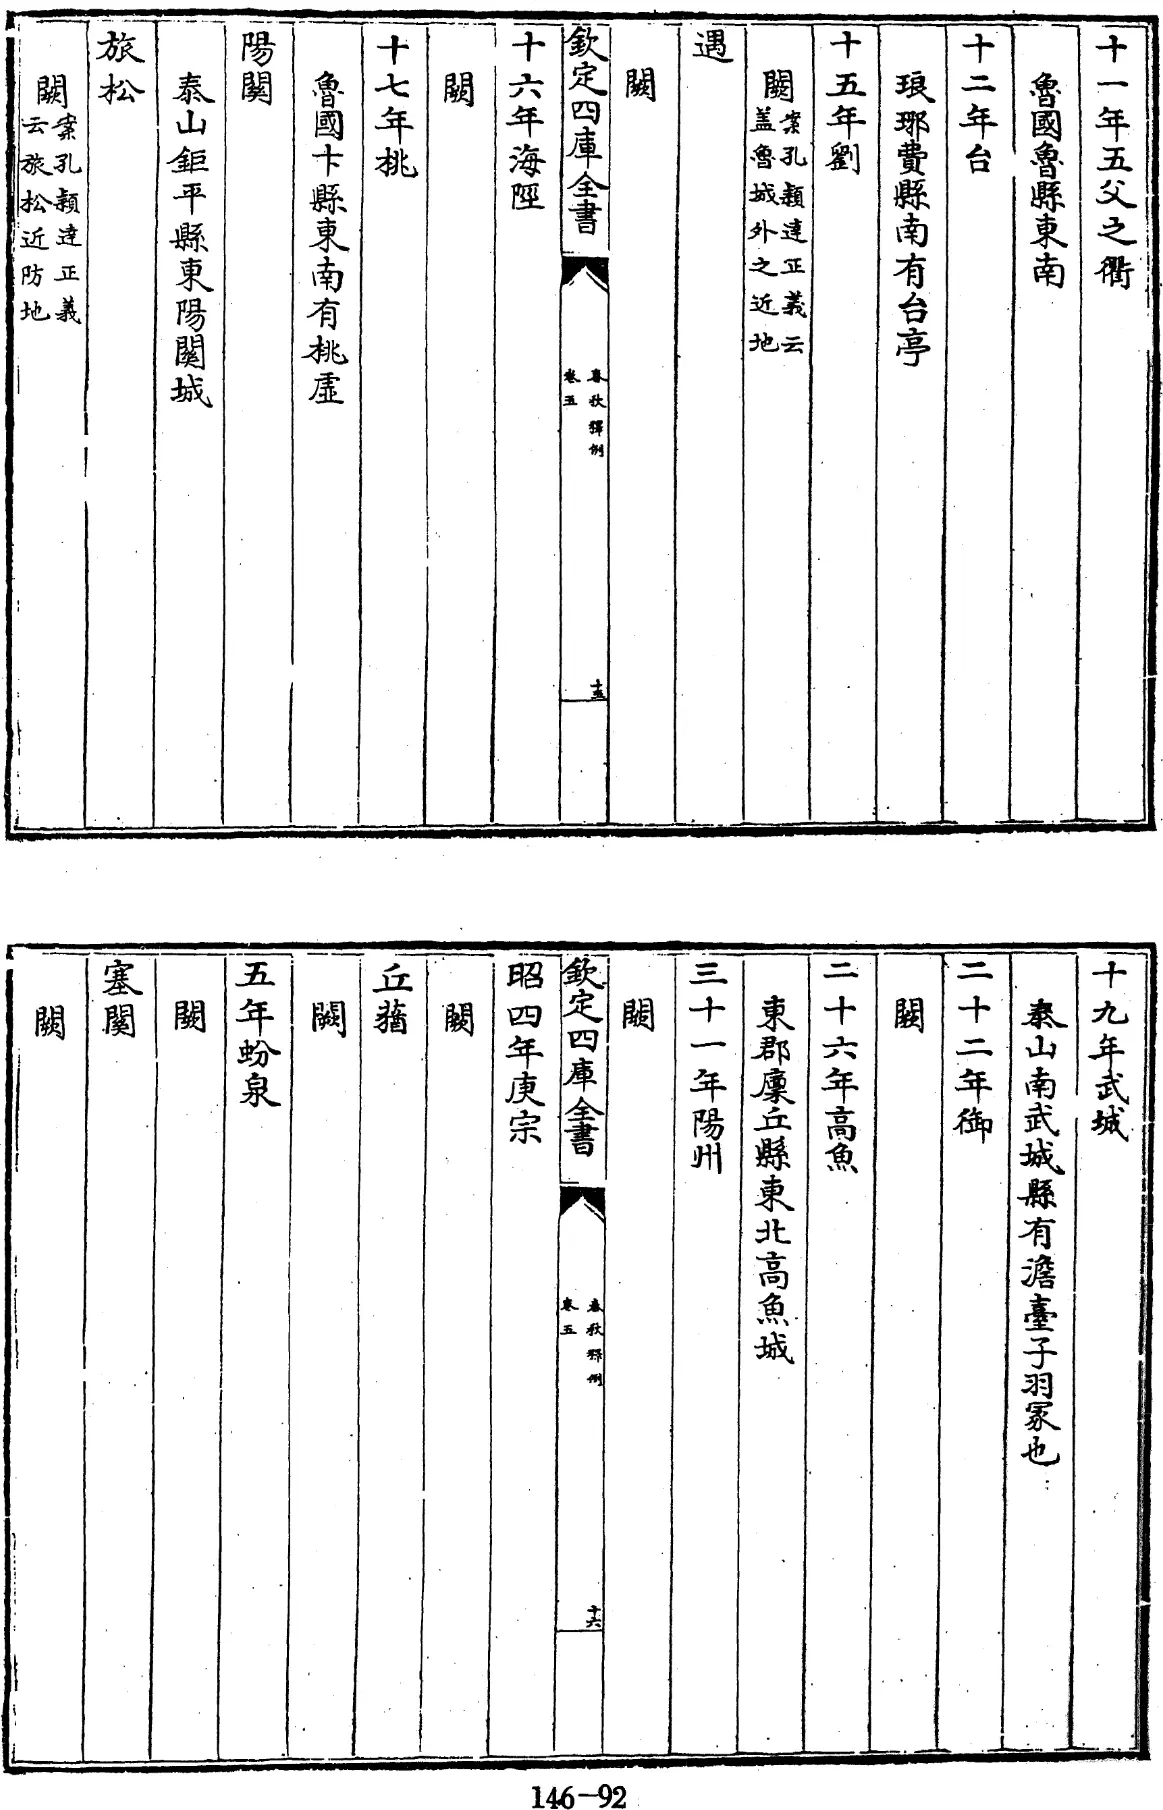 十一年五父之衢
魯國魯縣東南
十二年台
琅琊費縣南有台亭
十五年劉
闕案孔穎達正義云
蓋魯城外之近地
遇
闕
欽定四庫全書
春秋釋例
卷五
十五
十六年海陘
闕
十七年桃
魯國卞縣東南有桃虛
陽關
泰山鉅平縣東陽關城
旅松
闕案孔穎達正義
云旅松近防地
十九年武城
泰山南武城縣有澹臺子羽冢也
二十二年御
闕
二十六年高魚
東郡廩丘縣東北高魚城
三十一年陽州
闕
欽定四庫全書
春秋釋例
卷五
十六
昭四年庚宗
闕
丘蕕
闕
五年蚡泉
闕
塞關
闕
146-92